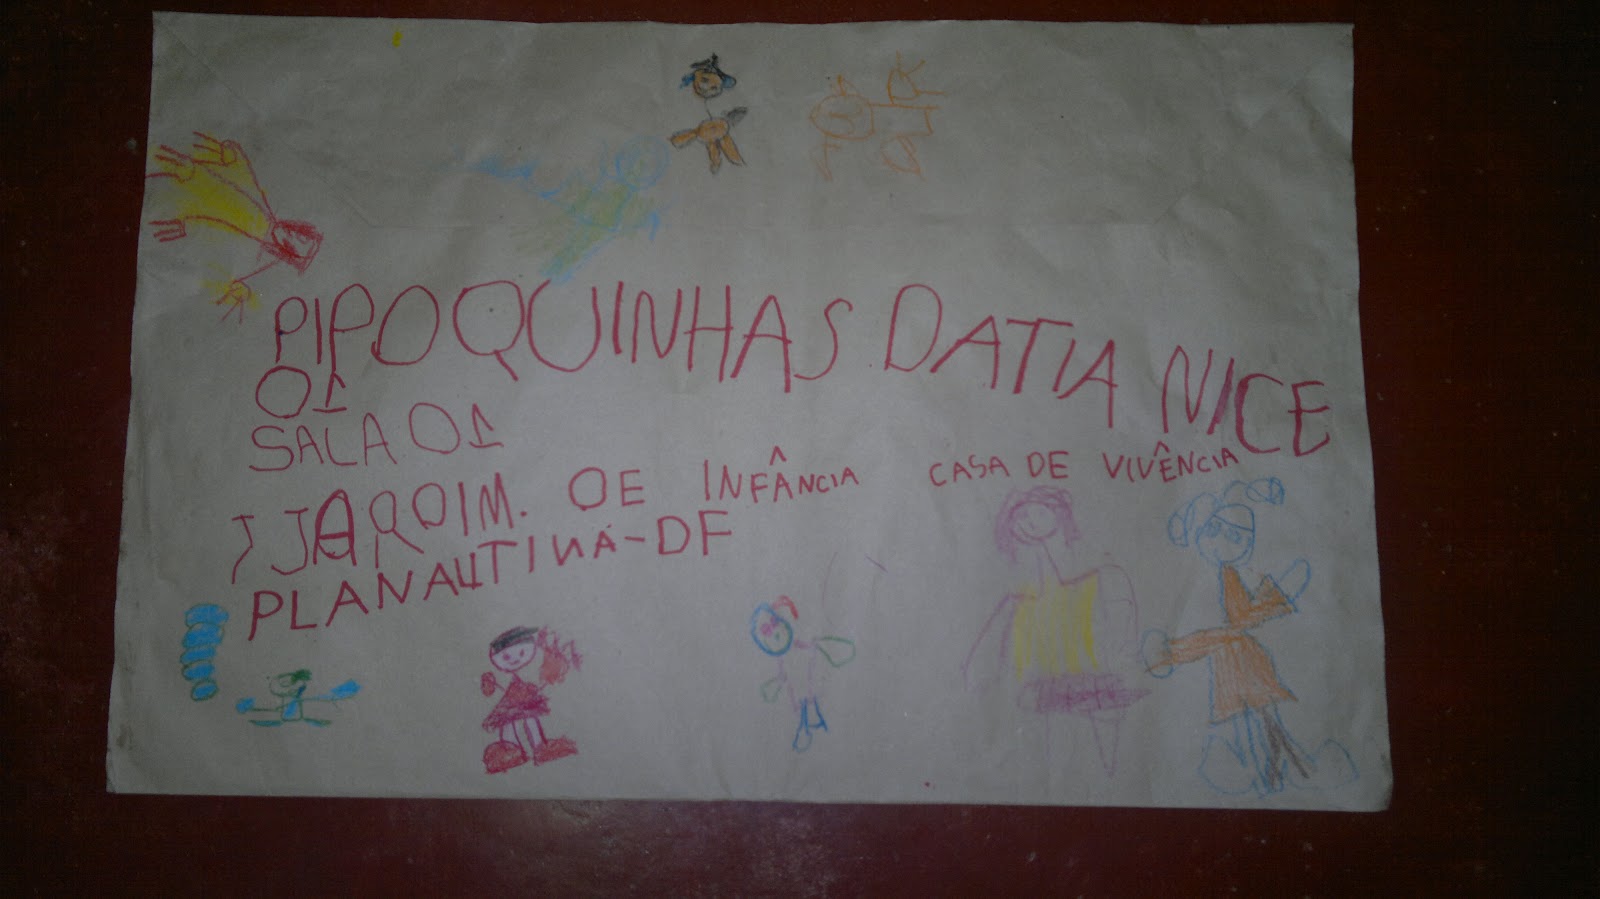 PIPOQUINHAS DA TIA NICE
01
SALA 01
J JARDIM. DE INFÂNCIA CASA DE VIVÊNCIA
PLANALTINA-DF